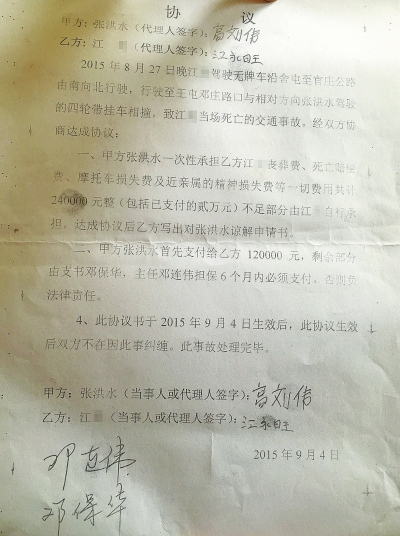 协 议
甲方：张洪水（代理人签字）：高刘倩
乙方：江（代理人签字）：江永旺
2015年8月27日晚江驾驶无牌车沿舍屯至官庄公路
由南向北行驶，行驶至王屯邓庄路口与相对方向张洪水驾驶
的四轮带挂车相撞，致江当场死亡的交通事故，经双方协
商达成协议：
一、甲方张洪水一次性承担乙方江丧葬费、死亡赔偿
费、摩托车损失费及近亲属的精神损失费等一切费用共计
240000元整（包括已支付的贰万元）不足部分由江自行承
担，达成协议后乙方写出对张洪水谅解申请书。
二、甲方张洪水首先支付给乙方120000元，剩余部分
由支书邓保华，主任邓连伟担保6个月内必须支付，否则负
法律责任。
4、此协议书于2015年9月4日生效后，此协议生效
后双方不在因此事纠缠。此事故处理完毕。
甲方：张洪水（当事人或代理人签字）：高刘倩
乙方：江（当事人或代理人签字）：江永旺
2015年9月4日
邓连伟
邓保华